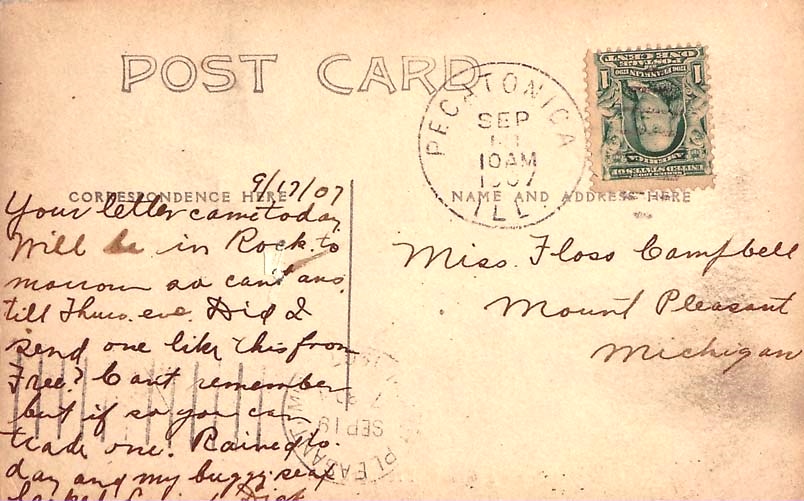 POST CARD
PECATONICA
SEP
10AM
1907
ILL
ONE CENT
POSTAGE
1 1
AMERICA
UNITED STATES OF
CORRESPONDENCE HERE
NAME AND ADDRESS HERE
9/17/07
Your letter came today
Will be in Rock. to
morrow so can't ans.
till Thurs. eve. Did I
send one like this from
Free? Cant remember
but if so you can
trade one. Rained to
day and my buggy seat
Miss. Floss Campbell
Mount Pleasant
Michigan
PLEASANT
SEP 19